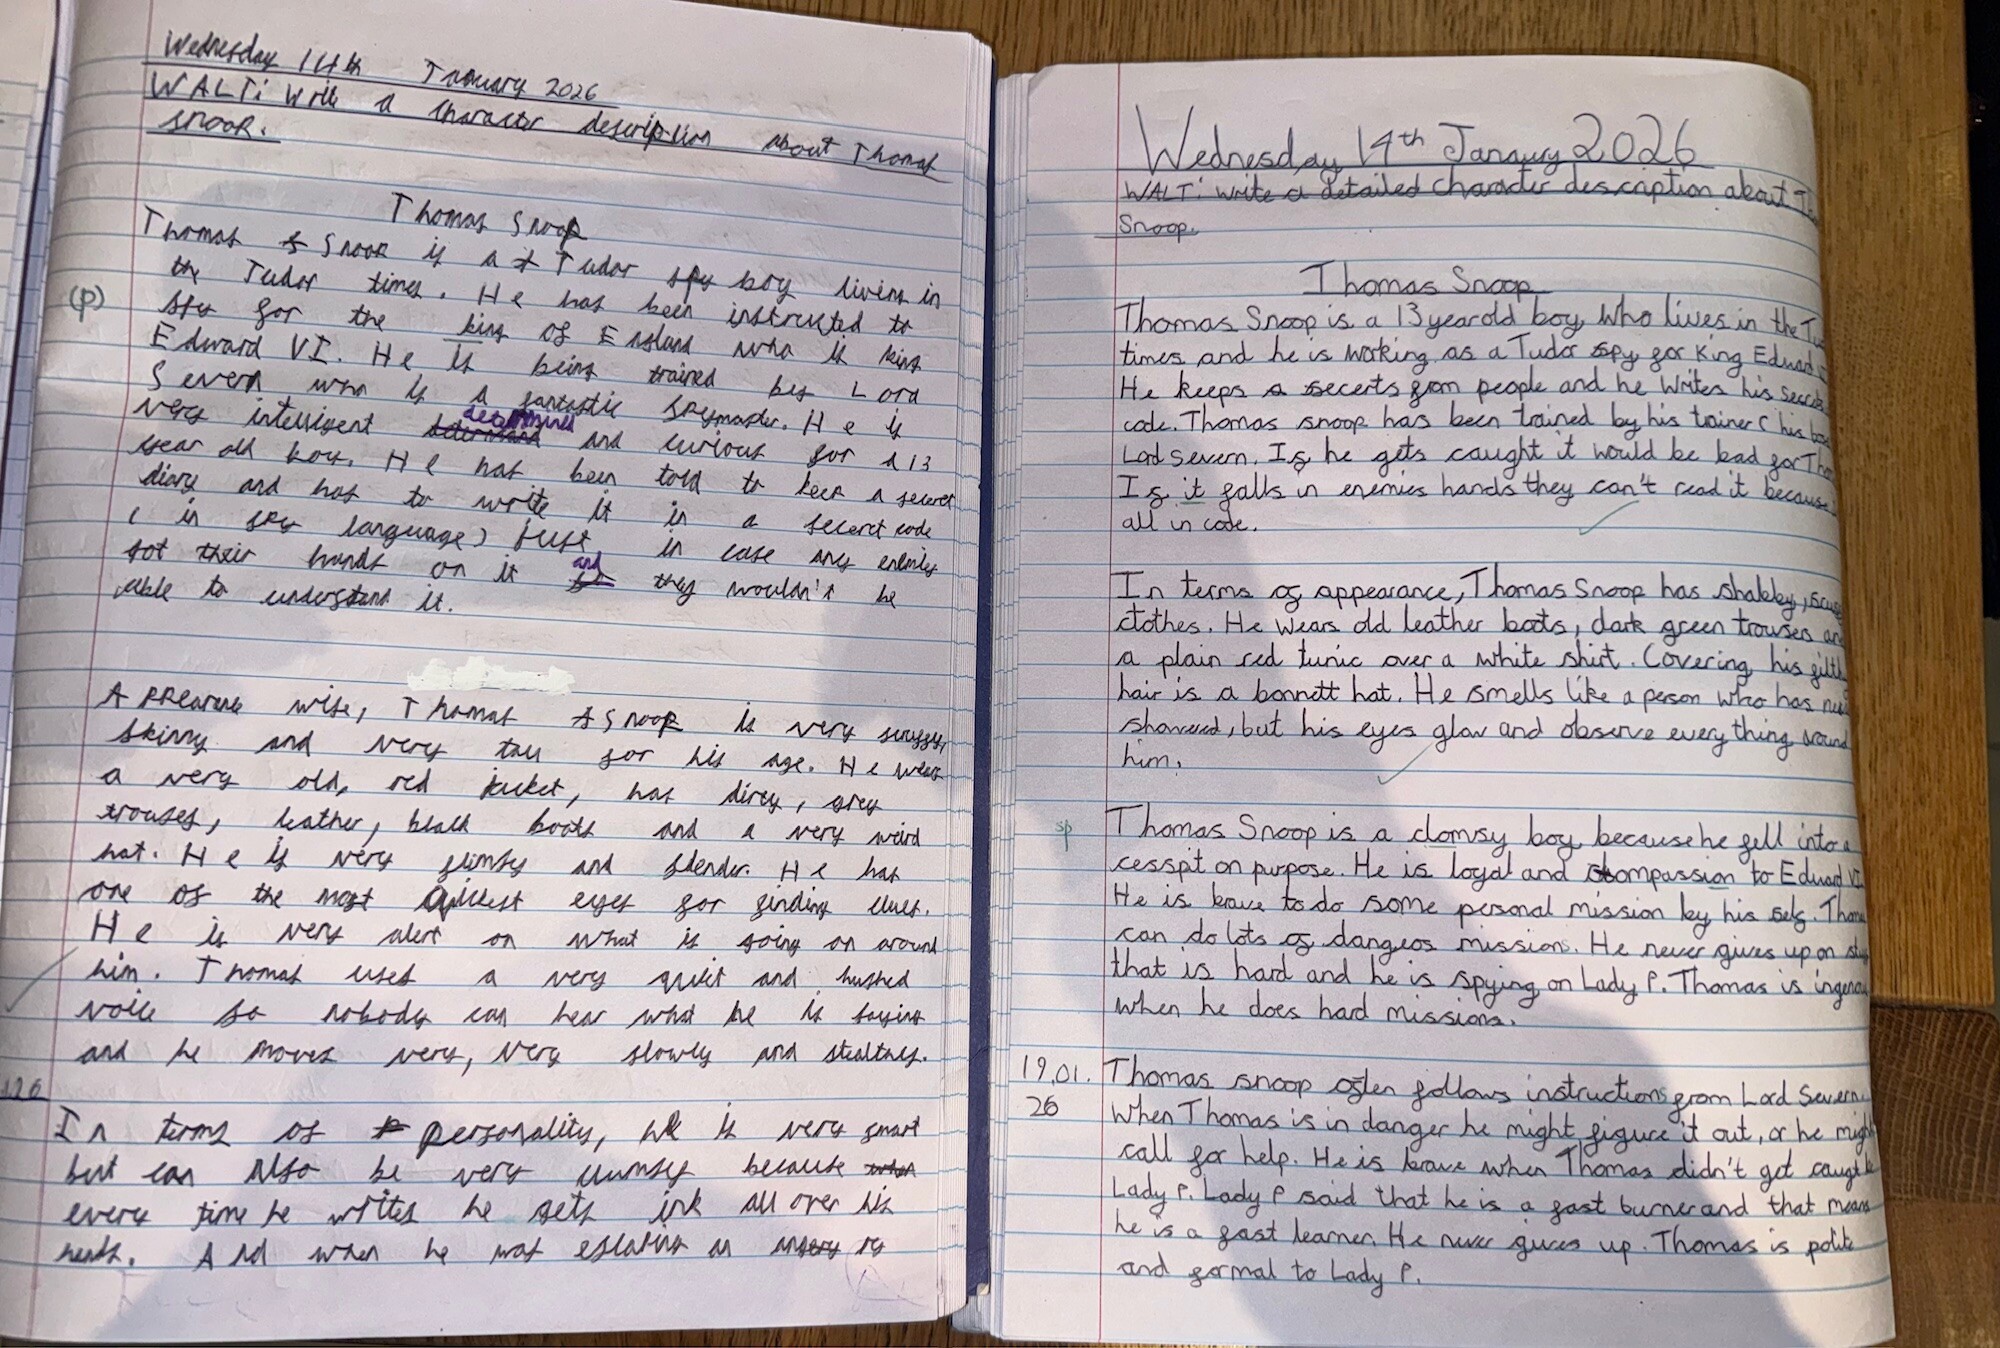 Wednesday 14th January 2026
WALT: Write a character description about Thomas
snoop.
Thomas Snoop
Thomas Snoop is a Tudor spy boy living in
the Tudor times. He has been instructed to
(p)
spy for the king of England who is king
Edward VI. He is being trained by Lord
Severn who is a fantastic spymaster. He is
very intelligent determined and curious for a 13
year old boy. He has been told to keep a secret
diary and has to write it in a secret code
( in spy language) just in case any enemy
got their hands on it and they wouldn't be
able to understand it.
wise, Thomas Snoop is very scruffy,
skinny and very tall for his age. He wears
a very old, red jacket, has dirty, grey
trouses, leather, black boots and a very weird
hat. He is very flimsy and slender. He has
one of the most eyes for finding clues.
He is very alert on what is going on around
him. Thomas uses a very quiet and hushed
voice so nobody can hear what he is saying
and he moves very, very slowly and
.26
In terms of personality, he is very smart
but can also be very clumsy because when
every time he writes he gets ink all over his
And when he was an angry
Wednesday 14th January 2026
WALT: write a detailed character description about
Snoop.
Thomas Snoop
Thomas Snoop is a 13 year old boy who lives in the
times and he is working as a Tudor spy for King Edward
He keeps secerts from people and he writes his
code. Thomas snoop has been trained by his trainer ( his
Lord Severn. If he gets caught it would be bad for
If it falls in enemies hands they can't read it because
all in code.
In terms of appearance, Thomas Snoop has
clothes. He wears old leather boots, dark green trouses
a plain red tunic over a white shirt. Covering his
hair is a bonnett hat. He smells like a person who has
showered, but his eyes glow and observe every thing around
him.
sp
Thomas Snoop is a clomsy boy because he fell into a
cesspit on purpose. He is loyal and compassion to Edward VI.
He is brave to do some personal mission by his self.
can do lots of dangeos missions. He never gives up on
that is hard and he is spying on Lady P. Thomas is
when he does hard missions.
19.01.
26
Thomas snoop often follows instructions from Lord Severn.
When Thomas is in danger he might figure it out, or he
call for help. He is brave when Thomas didn't get
Lady P. Lady P said that he is a fast burner and that means
he is a fast learner. He never gives up. Thomas is polite
and formal to Lady P.